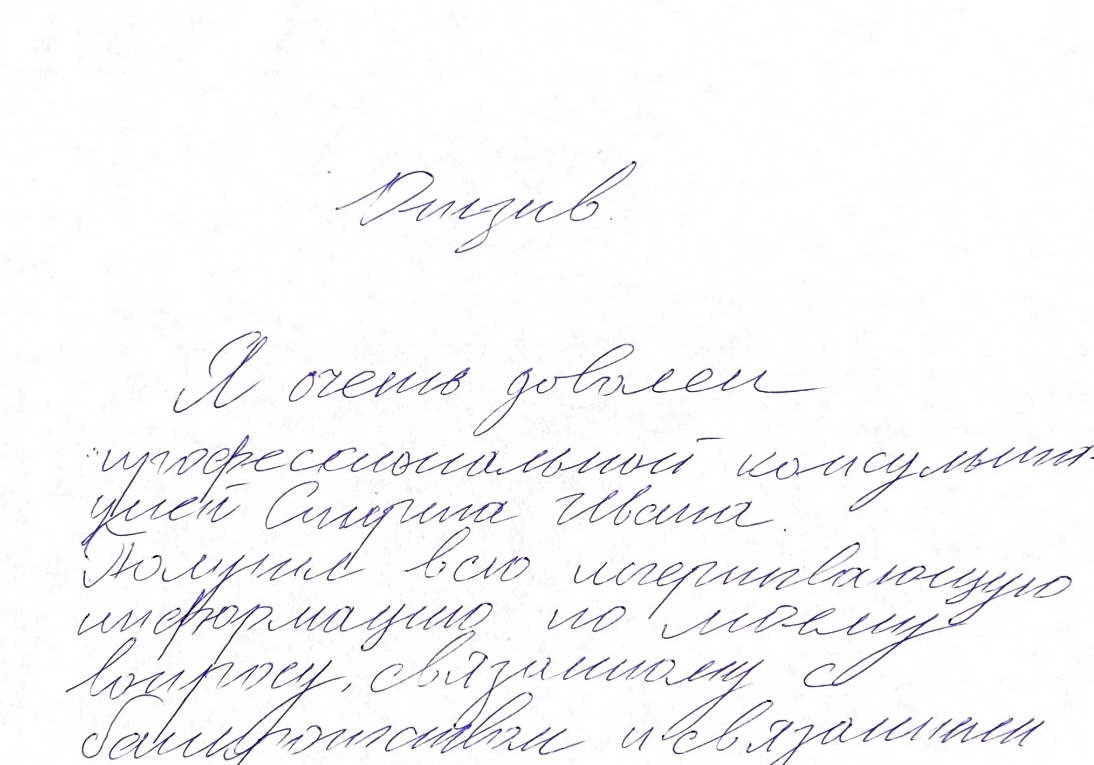 Отзыв.
Я очень доволен
профессиональной консульта-
цией Спирина Ивана.
Получил всю исчерпывающую
информацию по моему
вопросу, связанному с
банкротством и связанными